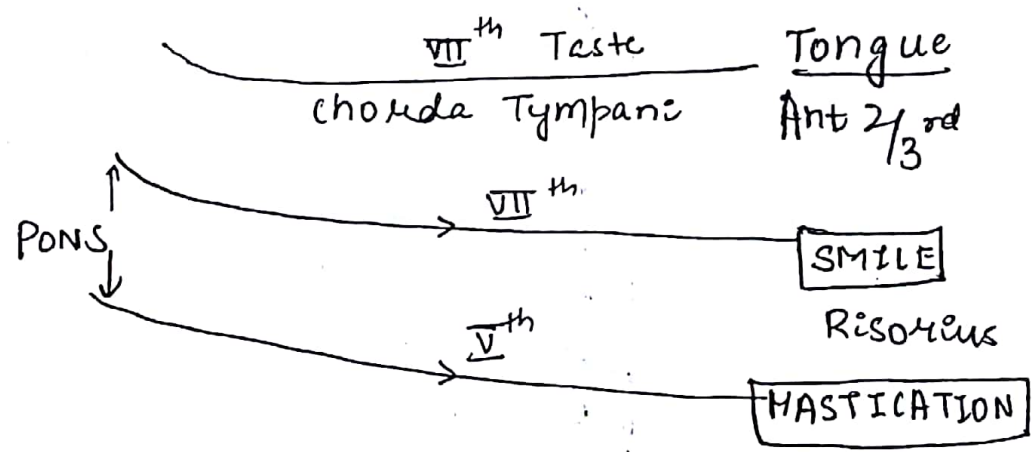 VII th Taste Tongue
Chorda Tympani Ant 2/3 rd
VII th
PONS SMILE
Risorius
V th
MASTICATION